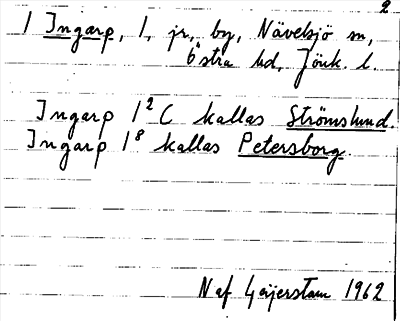 2
1 Ingarp, 1, jr, by, Nävelsjö sn,
Östra hd, Jönk. l.
Ingarp 1²C kallas Strömslund.
Ingarp 1⁸ kallas Petersborg.
N af Geijerstam 1962